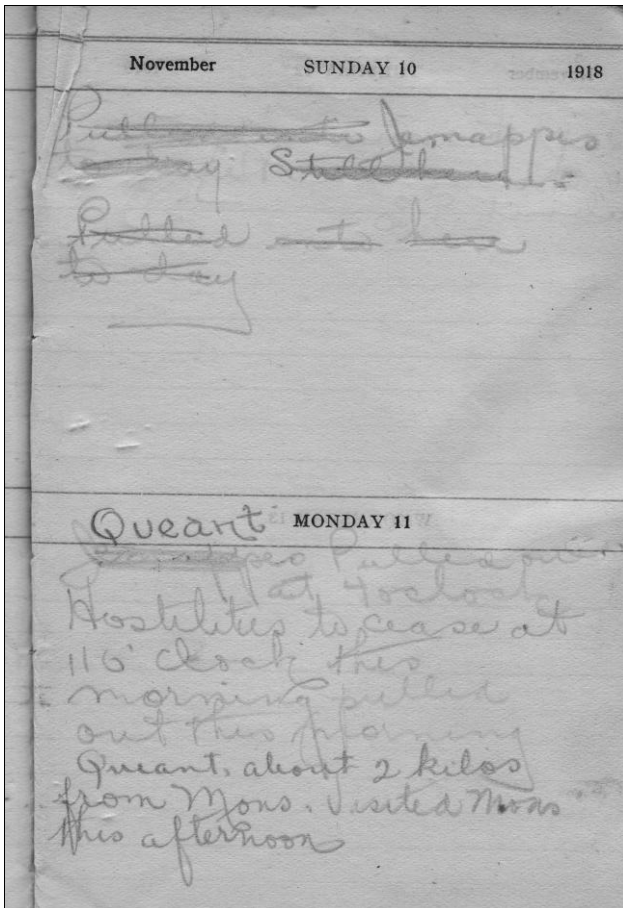 November SUNDAY 10 1918
Pulled into Jamappis
to day Still here.
Pulled into here
to day
Queant MONDAY 11
Jemappes Pulled out
at 4 oclock
Hostilities to cease at
11 O' Clock this
morning pulled
out this morning
Queant. about 2 kilos
from Mons. Visited Mons
this afternoon